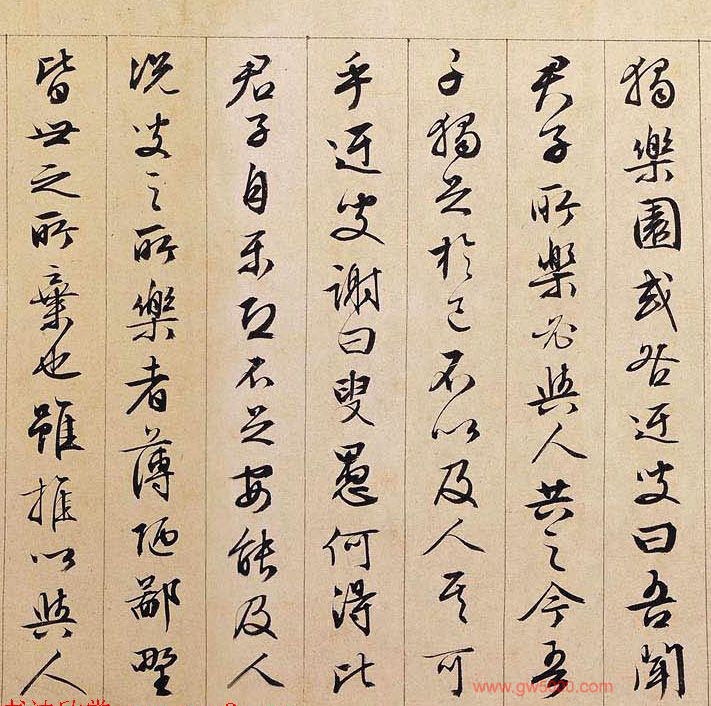 獨樂園或咎迂叟曰吾聞
君子所樂必與人共之今吾
子獨足於己不以及人其可
乎迂叟謝曰叟愚何得比
君子自樂恐不足安能及人
況叟之所樂者薄陋鄙野
皆世之所棄也雖推以與人